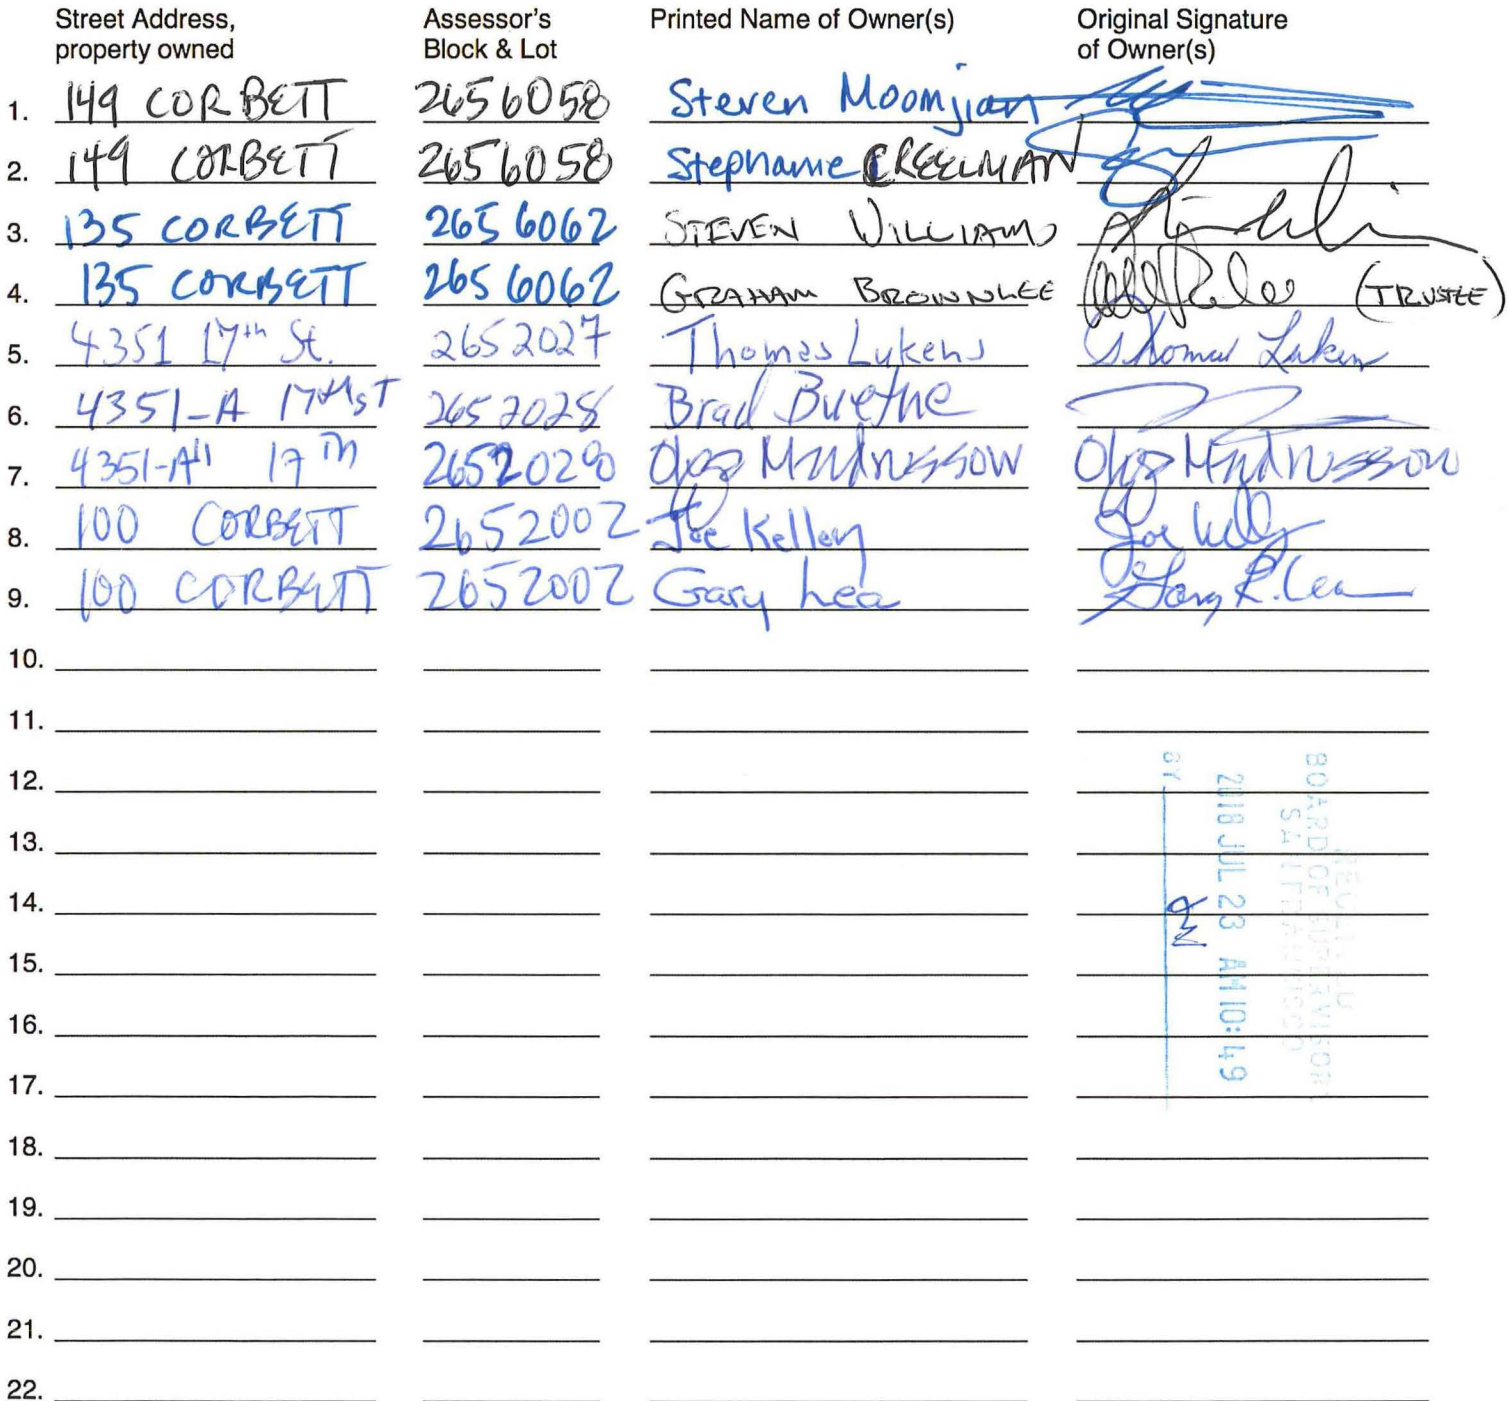 Street Address, property owned Assessor's Block & Lot Printed Name of Owner(s) Original Signature of Owner(s)
1. 149 CORBETT 2656058 Steven Moomjian
2. 149 CORBETT 2656058 Stephanie CREELMAN
3. 135 CORBETT 2656062 STEVEN WILLIAMS
4. 135 CORBETT 2656062 GRAHAM BROWNLEE (TRUSTEE)
5. 4351 17th St. 2652027 Thomas Lukens Thomas Lukens
6. 4351-A 17th ST 2652028 Brad Buethe
7. 17th
8. 100 CORBETT 2652002 Joe Kelley Joe Kelley
9. 100 CORBETT 2652002 Gary Lea Gary R. Lea
10.
11.
12.
13.
14.
15.
16.
17.
18.
19.
20.
21.
22.
RECEIVED
BOARD OF SUPERVISOR
SAN FRANCISCO
2018 JUL 23 AM 10:49
BY